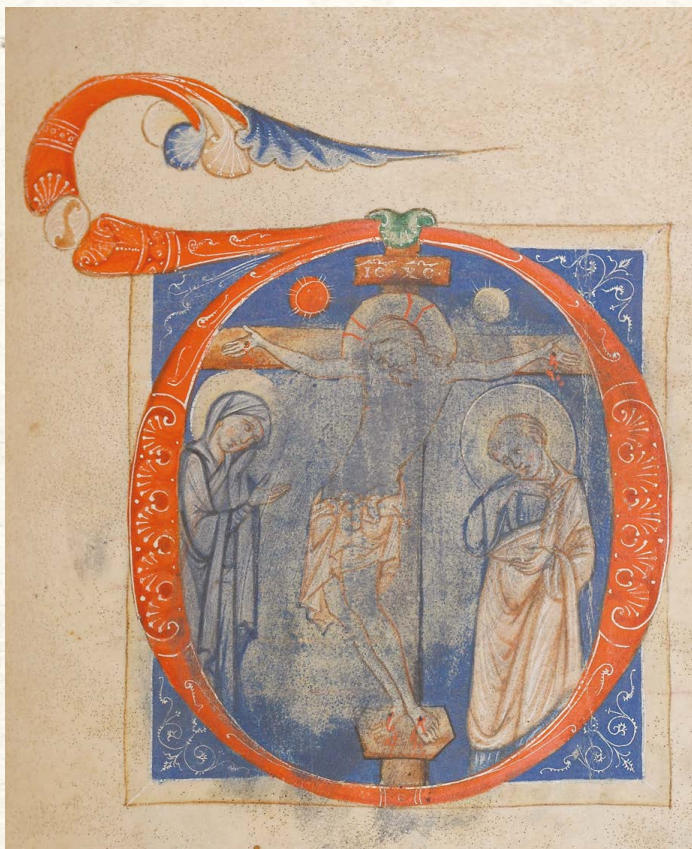 IC XC